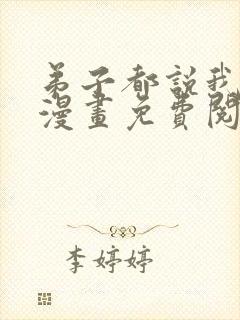 弟子都說我
漫畫免費閱
李婷婷